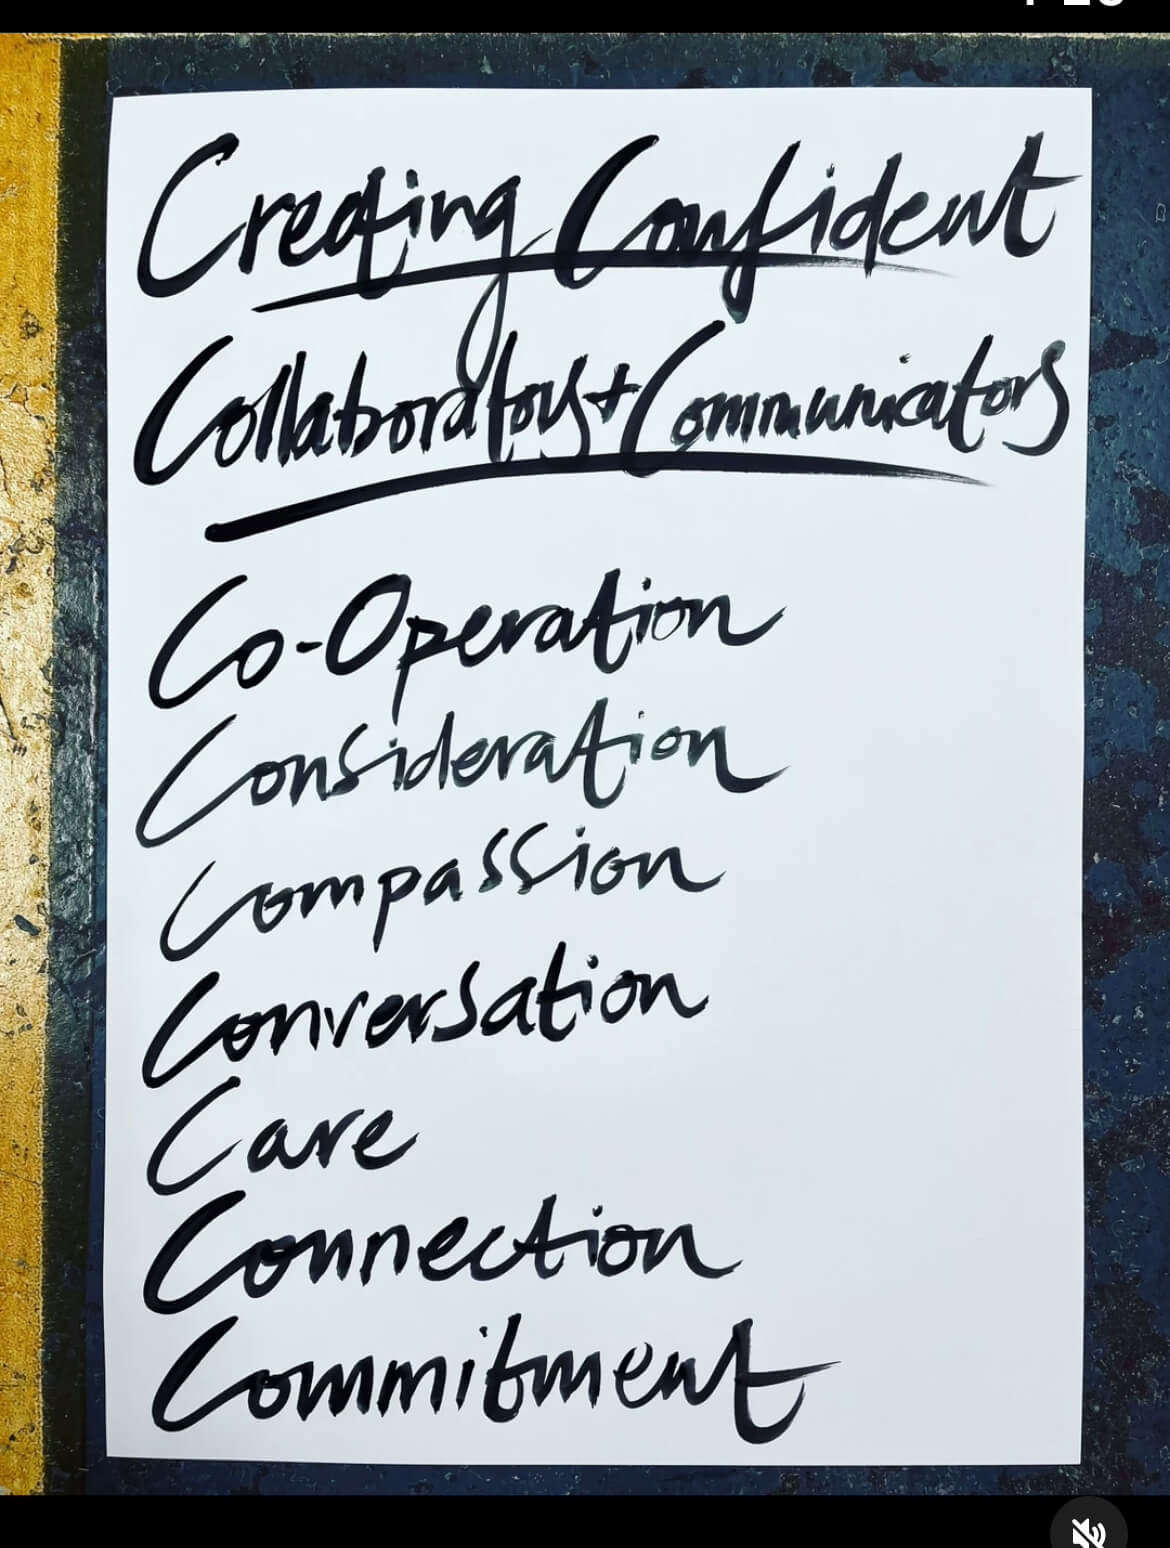 Creating Confident
Collaborators + Communicators
Co-Operation
Consideration
Compassion
Conversation
Care
Connection
Commitment